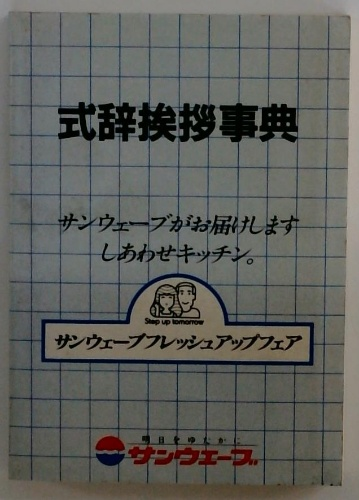 式辞挨拶事典
サンウェーブがお届けします
しあわせキッチン。
Step up tomorrow
サンウェーブフレッシュアップフェア
明日をゆたかに
サンウェーブ